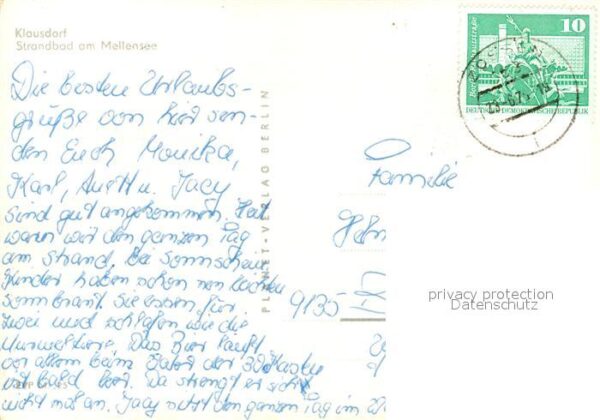 Klausdorf
Strandbad am Mellensee
10
DEUTSCHE DEMOKRATISCHE REPUBLIK
Die besten Urlaubs-
grüße von hier sen-
den Euch Monika,
Karl, Anett u. Jacy
sind gut angekommen. Heut
waren wir den ganzen Tag
am Strand. Bei Sonnenschein
Kinder haben schon nen leichten
Sonnbrant. Sie essen für
zwei und schlafen wie die
Murmeltiere. Das Bier läuft
vor allem beim Karl der 30 Kasten
ist bald leer. Da strengt er sich
nicht mal an. Jacy sitzt den ganzen Tag im
PLANET-VERLAG BERLIN
Familie
9135
privacy protection
Datenschutz